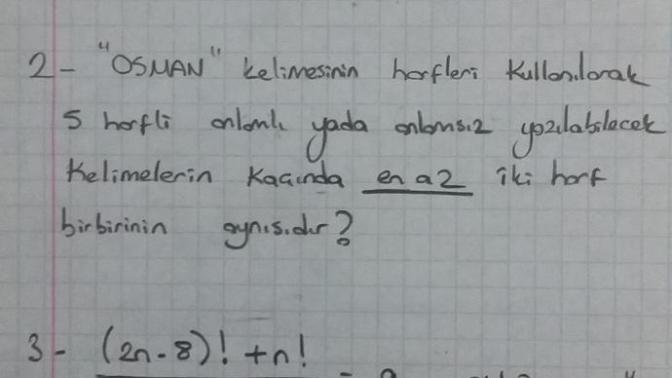 2- "OSMAN" kelimesinin harfleri kullanılarak
5 harfli anlamlı yada anlamsız yazılabilecek
kelimelerin kaçında en az iki harf
birbirinin aynısıdır?
3- (2n-8)! + n!